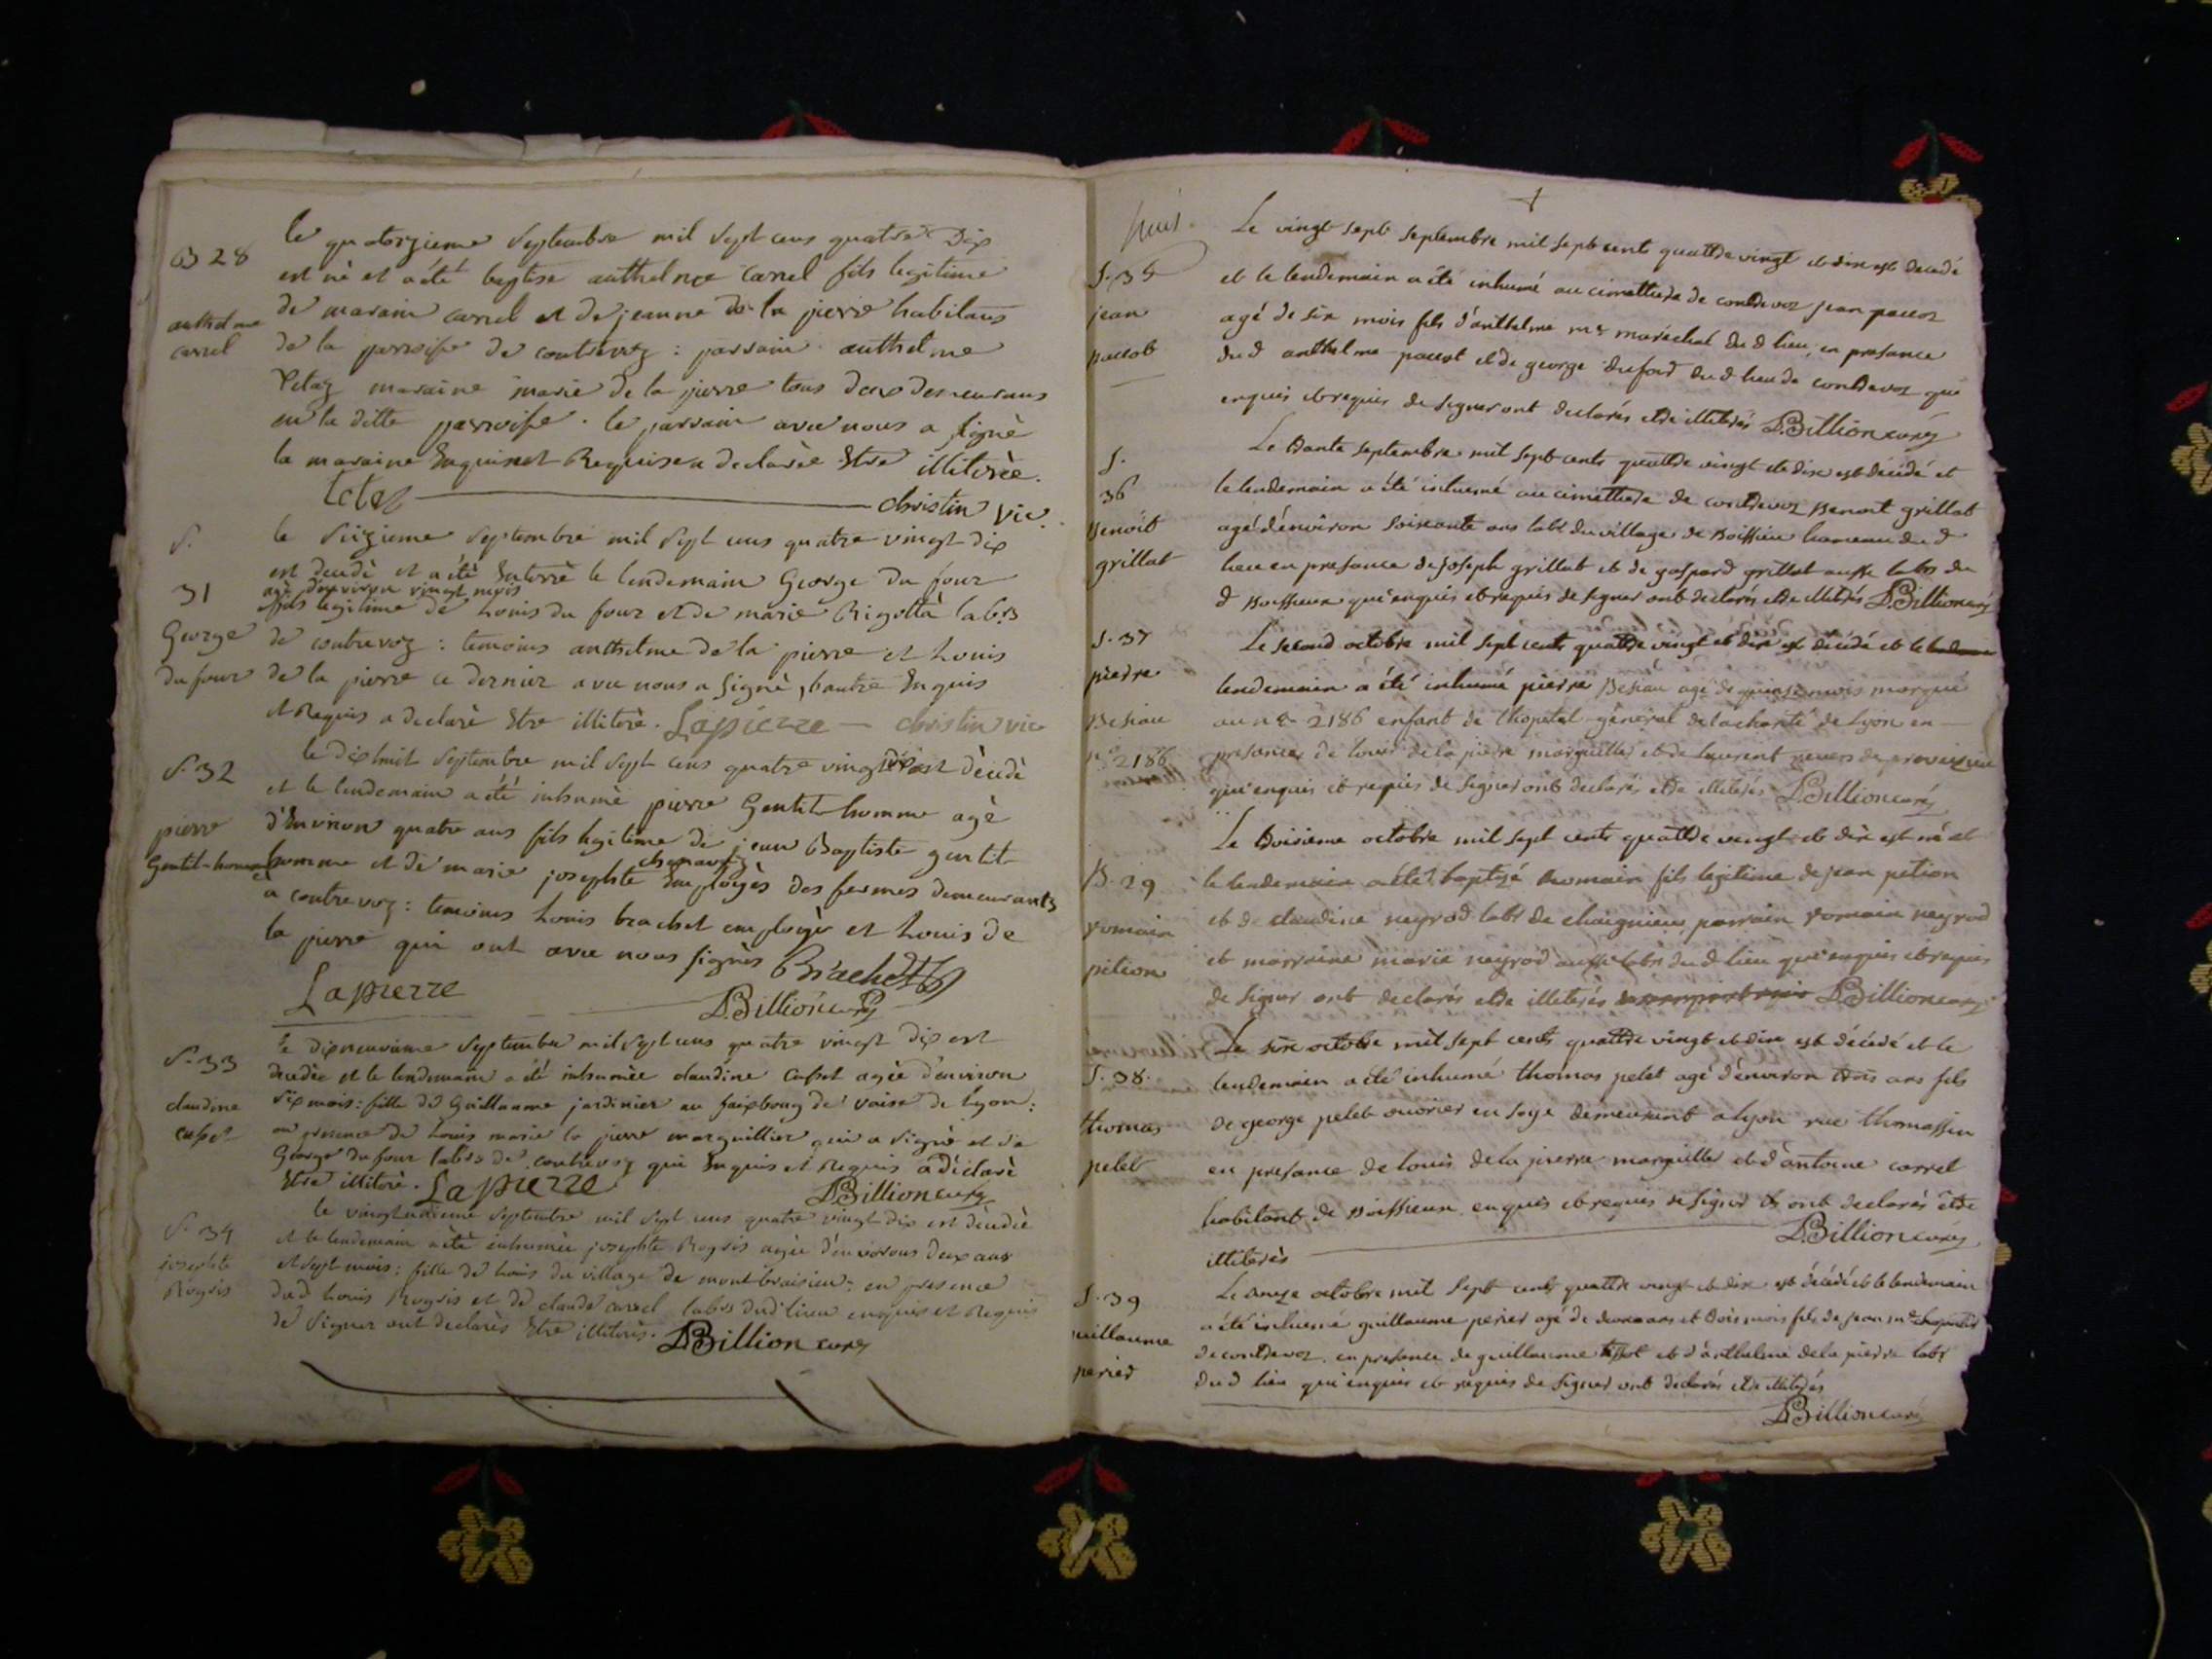 B 28
anthelme
carrel
le quatorzieme Septembre mil Sept cens quatre Dix
est né et a été baptise anthelme carrel fils legitime
de marain carrel et de jeanne de la pierre habitans
de la parroisse de contrevoz : parrain anthelme
Tetaz maraine marie de la pierre tous deux demeurans
en la ditte parroisse . le parrain avec nous a signé
la maraine Enquise et Requise a declarée Etre illiterée.
Tetaz christin vic.
S.
31
George
du four
le Seizieme Septembre mil Sept cens quatre vingt dix
est decedé et a été Enterré le lendemain George Du four
agé d'environ vingt mois
fils legitime de Louis du four et de marie Rigollet labrs
de contrevoz : temoins anthelme de la pierre et Louis
de la pierre ce dernier avec nous a signé, l'autre Enquis
et Requis a declaré Etre illiteré. Lapierre — christin vic
S. 32
pierre
Gentil-homme
le dix huit Septembre mil Sept cens quatre vingt dix est décédé
et le lendemain a été inhumé pierre Gentil homme agé
d'Environ quatre ans fils legitime de jean Baptiste gentil
homme et de marie josephte Employés des fermes demeurants
a contrevoz : temoins Louis brachet employé et Louis de
la pierre qui ont avec nous signés Brachet
Lapierre D.Billion curé
S. 33
claudine
le dixneuvieme Septembre mil Sept cens quatre vingt dix est
decedée et le lendemain a été inhumée claudine agée d'environ
six mois : fille de Guillaume jardinier au de vaise de Lyon :
en presence de Louis marie la pierre marguillier qui a signé et de
George du four labrs de contrevoz qui Enquis et Requis a déclaré
Etre illiteré. Lapierre D.Billion curé
S. 34
josephte
Rogris
le vingt Septembre mil Sept cens quatre vingt dix est décédée
et le lendemain a été inhumée josephte Rogris agée d'environs deux ans
et sept mois : fille de Louis du village de montbraisieu : en presence
dud Louis Rogris et de claude carrel labrs dud lieu enquis et Requis
de signer ont declarés Etre illiterés. D.Billion curé
S. 35
jean
paccot
Le vingt sept septembre mil sept cents quattre vingt et dix est decedé
et le lendemain a été inhumé au cimettiere de contrevoz jean paccot
agé de six mois fils d'anthelme mre maréchal du d lieu, en presance
dud anthelme paccot et de george dufour du d lieu de contrevoz qui
enquis et requis de signer ont declarés etre illiterés D.Billion curé
S.
36
Benoit
grillat
Le trante septembre mil sept cents quattre vingt et dix est décédé et
le lendemain a été inhumé au cimettiere de contrevoz Benoit grillat
agé d'environ soixante ans labr du village de Boissieu hameau du d
lieu en presance de joseph grillat et de gaspard grillat aussi labrs du
d Boissieu qui enquis et requis de signer ont declarés etre illiterés D.Billion curé
S. 37
pierre
Besiau
no 2186
Le second octobre mil sept cents quattre vingt et dix est décédé et le
lendemain a été inhumé pierre Besiau agé de quinze mois marqué
au no 2186 enfant de l'hopital général de la charité de Lyon en
presance de louis de la pierre marguillier et de laurent
qui enquis et requis de signer ont declarés etre illiterés D.Billion curé
B. 29
romain
pition
Le troisieme octobre mil sept cents quattre vingt et dix est né et
le lendemain a été baptizé romain fils legitime de jean pition
et de claudine neyrod labr de chaignieu, parrain romain neyrod
et marraine marie neyrod aussi labrs du d lieu qui enquis et requis
de signer ont declarés etre illiterés D.Billion curé
S. 38.
thomas
pelet
Le six octobre mil sept cents quattre vingt et dix est décédé et le
lendemain a été inhumé thomas pelet agé d'environ trois ans fils
de george pelet ouvrier en soye demeurant a lyon rue thomassin
en presance de louis de la pierre marguillier et d'antoine carrel
habitant de Boissieu enquis et requis de signer ils ont declarés etre
illiterés D.Billion curé
S. 39
guillaume
perier
Le onze octobre mil sept cents quattre vingt et dix est décédé et le lendemain
a été inhumé guillaume perier agé de deux ans et trois mois fils de jean mre
de contrevoz, en presance de guillaume tissot et d'anthelme de la pierre labrs
du d lieu qui enquis et requis de signer ont declarés etre illiterés
D.Billion curé